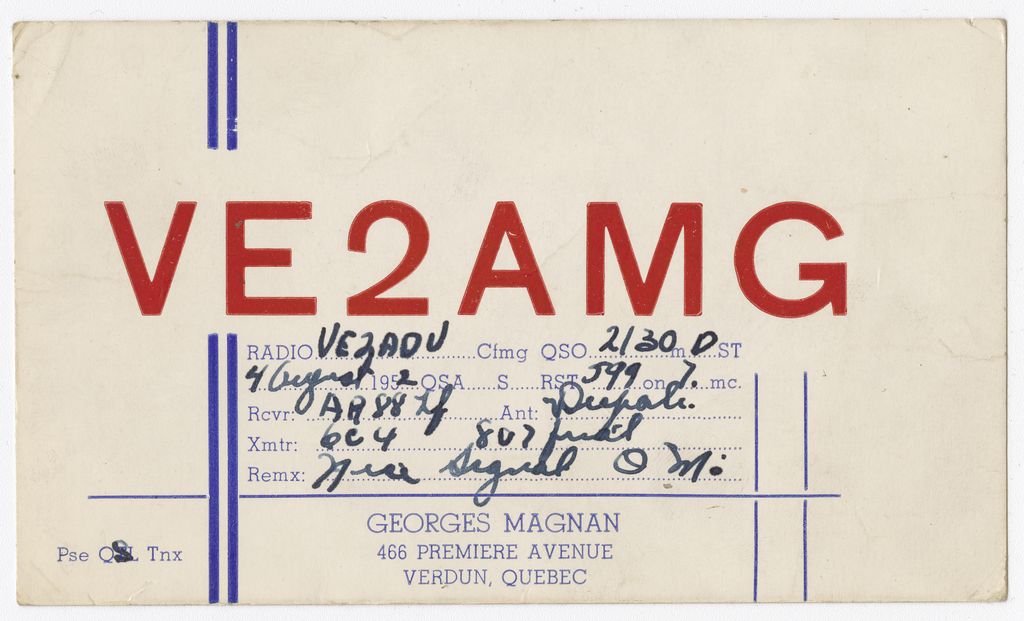 VE2AMG
RADIO VE2ADV Cfmg QSO 2130 m D ST
4 August 1952 QSA S RST 599 on 7. mc.
Rcvr: AR88 Lf Ant: Dipole.
Xmtr: 6C4 807 final
Remx: Nice Signal O M.
GEORGES MAGNAN
466 PREMIERE AVENUE
VERDUN, QUEBEC
Pse QSL Tnx